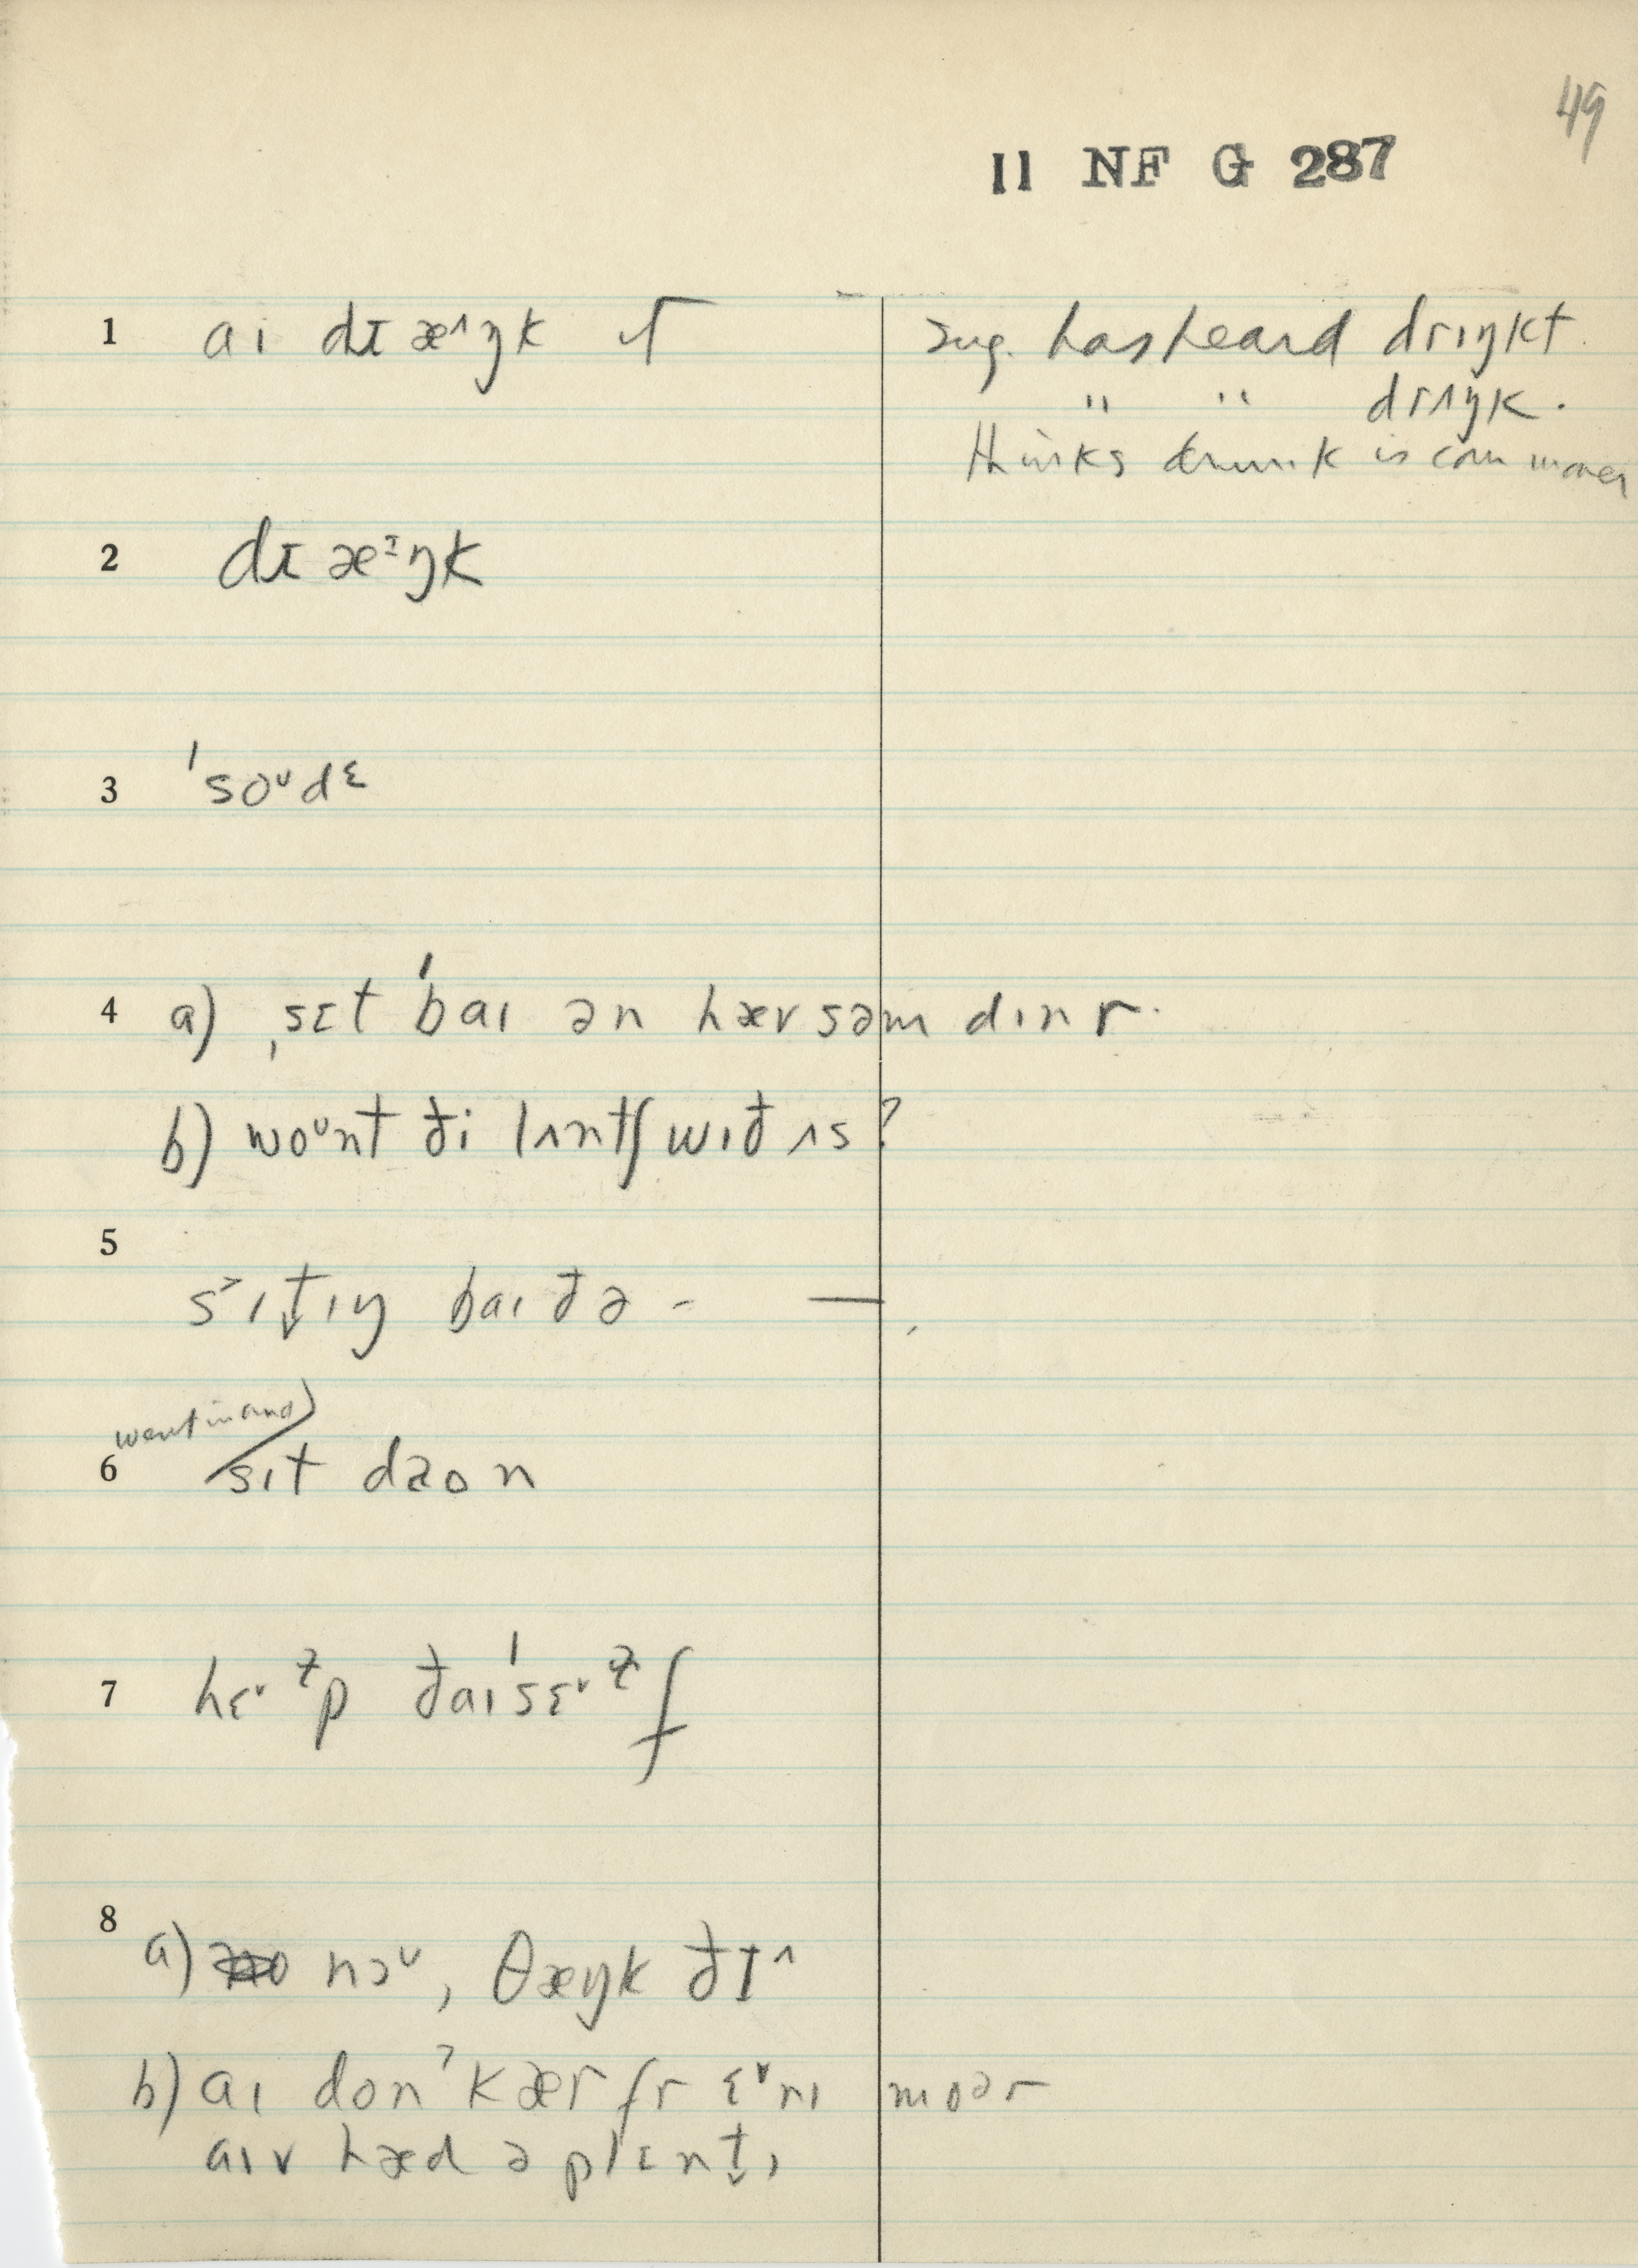 49
II NF G 287
1 ai dɪæ^ŋk ı͡ sug. has heard drıŋkt.
" " drʌŋk.
thinks drunk is commoner
2 dɪæᶦŋk
3 'soᵛdᵋ
4 a) ˌsɛt 'baı ən hæv səm dınr.
b) woᵛnt ði lʌntʃ wıð ʌs?
5
s˃ıt̬ıŋ baı ðə - —
went in and)
6 sıt daon
7 hɛᵛɫp ðaı'sɛᵛɫf
8
a) nɔᵛ, θæŋk ðI^
b) aı donˀkær fr ɛᵛnı moər
aıv hæd ə plɛnt̬ı